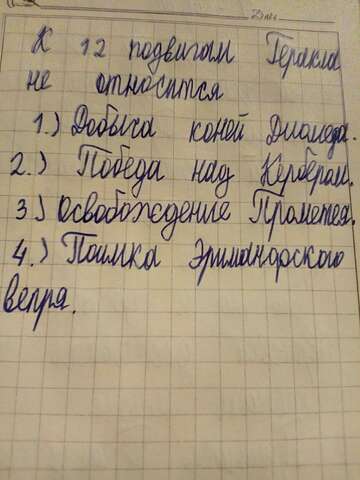 К 12 подвигам Геракла
не относится
1.) Добыча коней Диомеда.
2.) Победа над Кербером.
3.) Освобождение Прометея.
4.) Поимка Эриманфского
вепря.